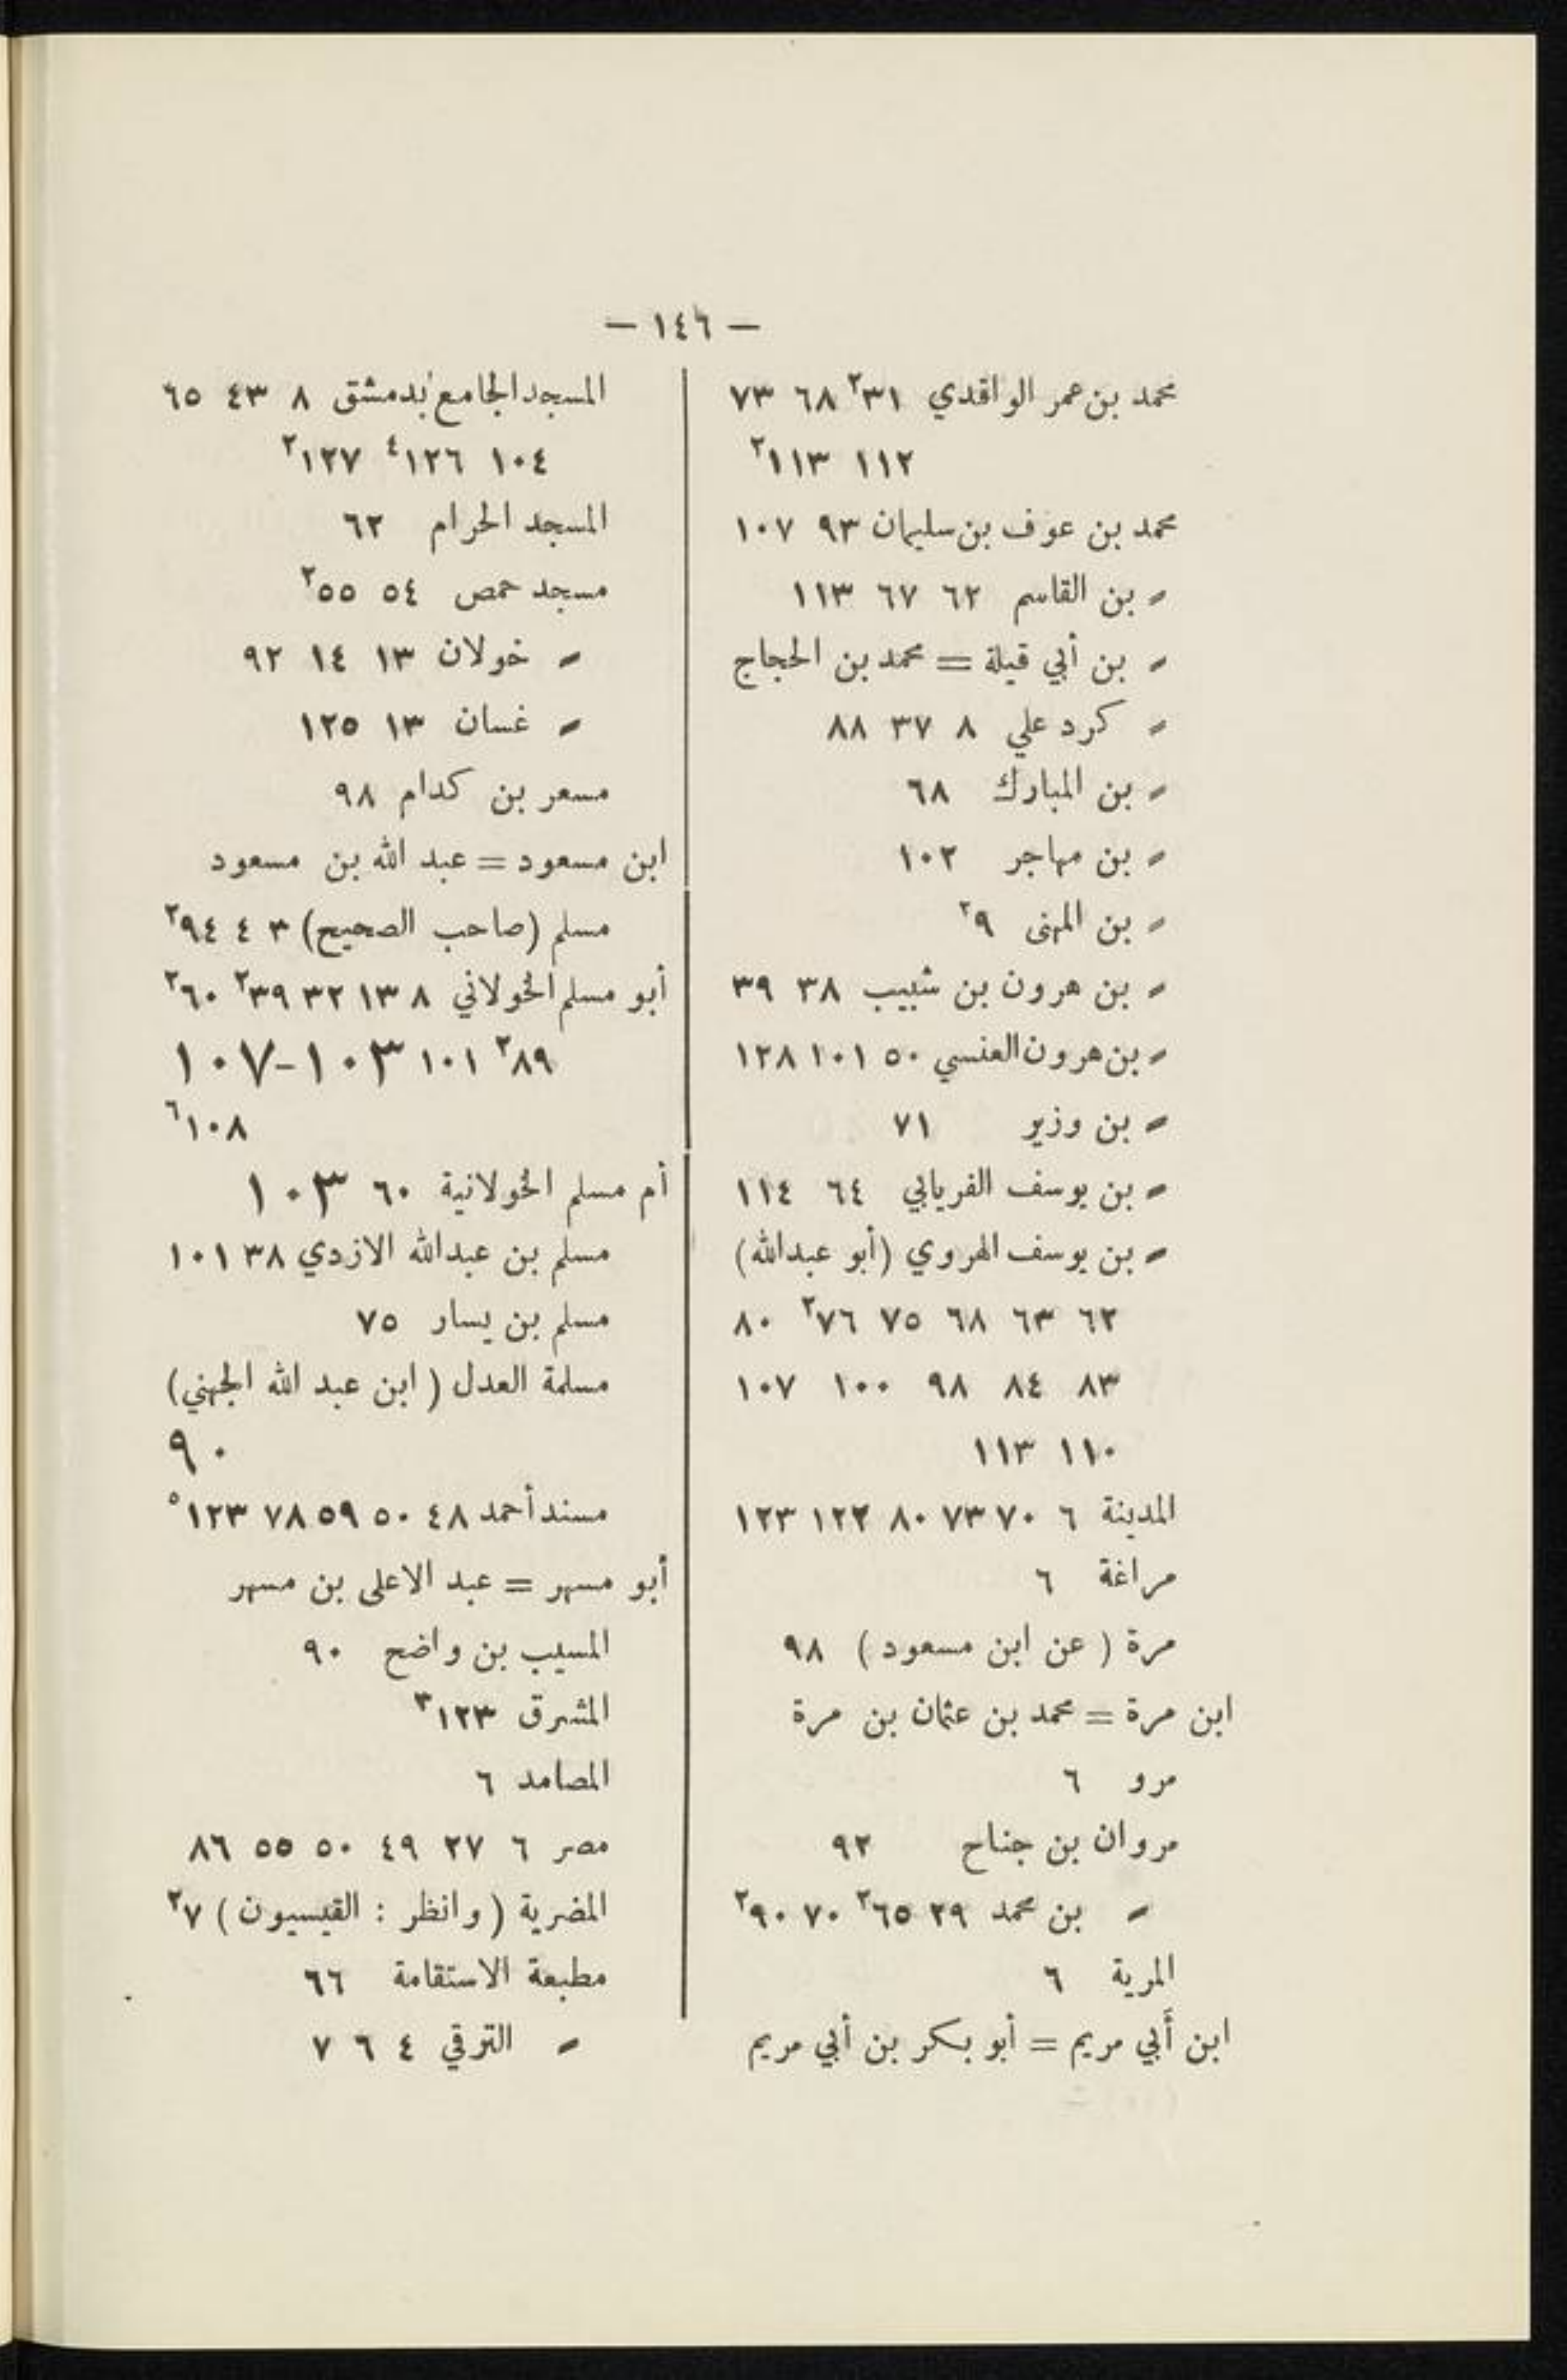 — ١٤٦ —
محمد بن عمر الواقدي ٣١٢ ٦٨ ٧٣
١١٢ ١١٣٢
محمد بن عوف بن سليمان ٩٣ ١٠٧
ـ بن القاسم ٦٢ ٦٧ ١١٣
ـ بن أبي قيلة = محمد بن الحجاج
ـ كرد علي ٨ ٣٧ ٨٨
ـ بن المبارك ٦٨
ـ بن مهاجر ١٠٢
ـ بن المهنى ٩٢
ـ بن هرون بن شبيب ٣٨ ٣٩
ـ بن هرون العنسي ٥٠ ١٠١ ١٢٨
ـ بن وزير ٧١
ـ بن يوسف الفريابي ٦٤ ١١٤
ـ بن يوسف الهروي (أبو عبدالله)
٦٢ ٦٣ ٦٨ ٧٥ ٧٦٢ ٨٠
٨٣ ٨٤ ٩٨ ١٠٠ ١٠٧
١١٠ ١١٣
المدينة ٦ ٧٠ ٧٣ ٨٠ ١٢٢ ١٢٣
مراغة ٦
مرة ( عن ابن مسعود ) ٩٨
ابن مرة = محمد بن عثمان بن مرة
مرو ٦
مروان بن جناح ٩٢
ـ بن محمد ٢٩ ٦٥٢ ٧٠ ٩٠٢
المرية ٦
ابن أبي مريم = أبو بكر بن أبي مريم
المسجد الجامع بدمشق ٨ ٤٣ ٦٥
١٠٤ ١٢٦٤ ١٢٧٢
المسجد الحرام ٦٢
مسجد حمص ٥٤ ٥٥٢
ـ خولان ١٣ ١٤ ٩٢
ـ غسان ١٣ ١٢٥
مسعر بن كدام ٩٨
ابن مسعود = عبد الله بن مسعود
مسلم (صاحب الصحيح) ٣ ٤ ٩٤٢
أبو مسلم الخولاني ٨ ١٣ ٣٢ ٣٩٢ ٦٠٢
٨٩٢ ١٠١ ١٠٣-١٠٧
١٠٨٦
أم مسلم الخولانية ٦٠ ١٠٣
مسلم بن عبدالله الازدي ٣٨ ١٠١
مسلم بن يسار ٧٥
مسلمة العدل ( ابن عبد الله الجهني)
٩٠
مسند أحمد ٤٨ ٥٠ ٥٩ ٧٨ ١٢٣٥
أبو مسهر = عبد الاعلى بن مسهر
المسيب بن واضح ٩٠
المشرق ١٢٣٣
المصامد ٦
مصر ٦ ٢٧ ٤٩ ٥٠ ٥٥ ٨٦
المضرية ( وانظر : القيسيون ) ٧٢
مطبعة الاستقامة ٦٦
ـ الترقي ٤ ٦ ٧